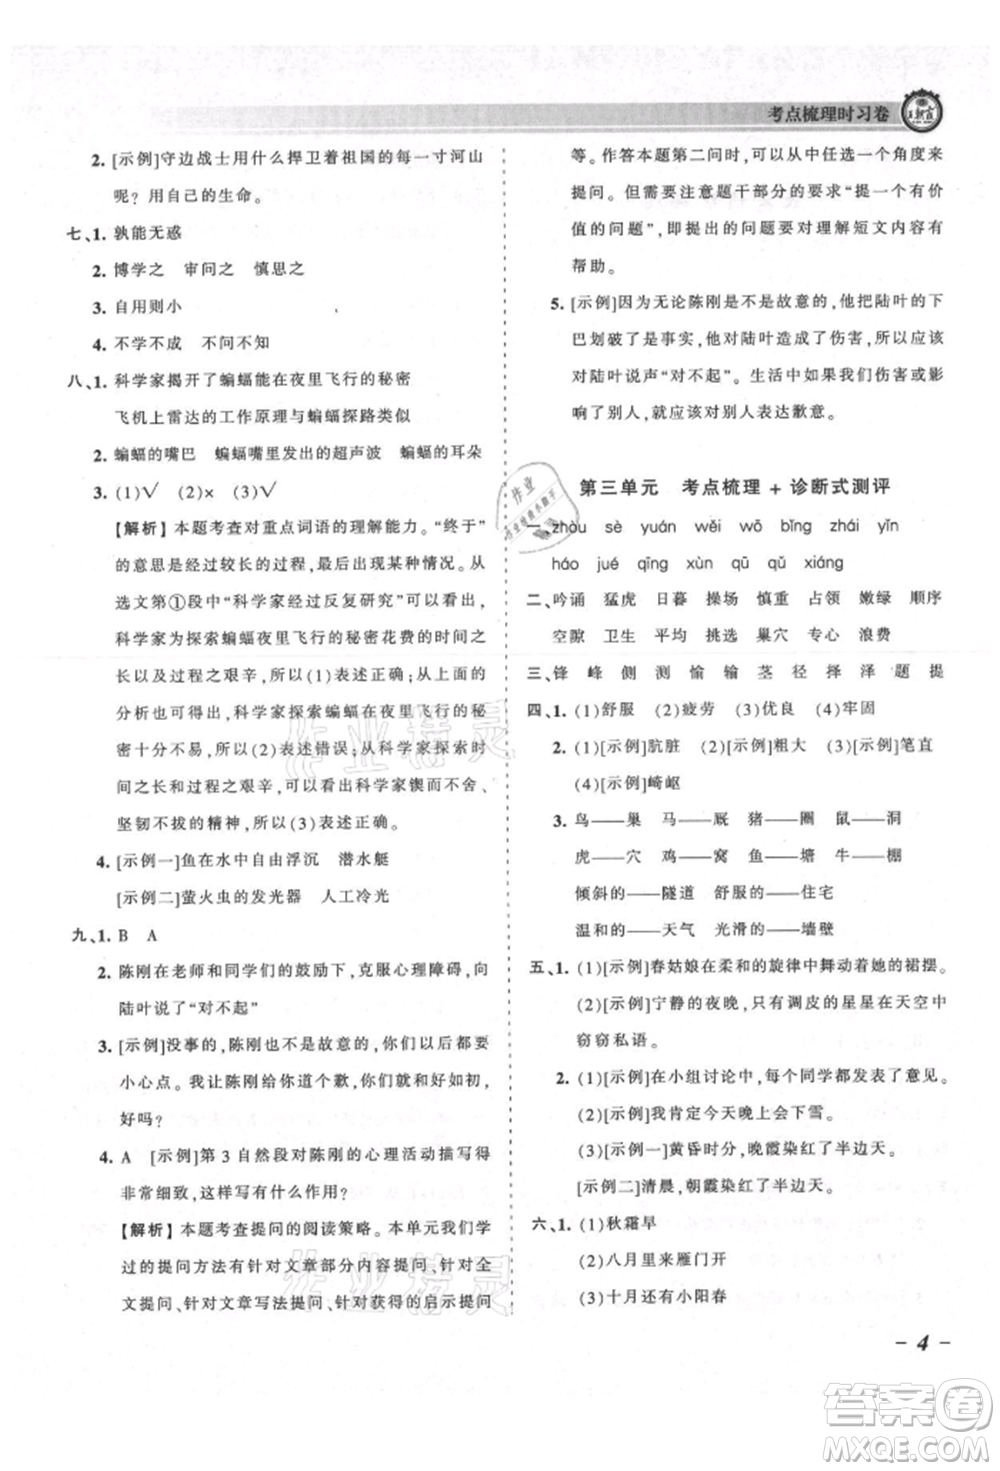 考点梳理时习卷
王朝霞
2. [示例]守边战士用什么捍卫着祖国的每一寸河山
呢？用自己的生命。
七、1. 孰能无惑
2. 博学之　审问之　慎思之
3. 自用则小
4. 不学不成　不问不知
八、1. 科学家揭开了蝙蝠能在夜里飞行的秘密
飞机上雷达的工作原理与蝙蝠探路类似
2. 蝙蝠的嘴巴　蝙蝠嘴里发出的超声波　蝙蝠的耳朵
3. (1)√　(2)×　(3)√
【解析】本题考查对重点词语的理解能力。“终于”的
意思是经过较长的过程，最后出现某种情况。从
选文第①段中“科学家经过反复研究”可以看出，
科学家为探索蝙蝠夜里飞行的秘密花费的时间之
长以及过程之艰辛，所以(1)表述正确；从上面的
分析可以看出，科学家探索蝙蝠在夜里飞行的秘
密十分艰辛，所以(2)表述错误；从科学家探索时
间之长和过程之艰辛，可以看出科学家锲而不舍、
坚韧不拔的精神，所以(3)表述正确。
4. [示例一]鱼在水中自由浮沉　潜水艇
[示例二]萤火虫的发光器　人工冷光
九、1. B　A
2. 陈刚在老师和同学们的鼓励下，克服心理障碍，向
陆叶说了“对不起”
3. [示例]没事的，陈刚也不是故意的，你以后也要
小心点。我让陈刚给你道个歉，你们和好如初，
好吗？
4. A　[示例]第 3 自然段对陈刚的心理活动描写得
非常细致，这样写有什么作用？
【解析】本题考查提问的阅读策略。本单元我们学
过的提问方法有针对文章部分内容提问、针对全
文提问、针对文章写法提问、针对得到的启示提问
等。作答本题第二问时，可以从中任选一个角度来
提问。但需要注意题干部分的要求“提一个有价
值的问题”，即提出的问题要对理解短文内容有
帮助。
5. [示例]因为无论陈刚是不是故意的，他把陆叶的下
巴划破了是事实，他对陆叶造成了伤害，所以应该
对陆叶说声“对不起”。生活中如果我们伤害或影
响了别人，就应该对别人表达歉意。
第三单元　考点梳理 + 诊断式测评
一、zhòu　sè　yuán　wěi　wō　bǐng　zhái　yǐn
háo　jué　qīng　xùn　qū　qǔ　xiáng
二、吟诵　猛虎　日暮　操场　慎重　占领　嫩绿　顺序
空隙　卫生　平均　挑选　巢穴　专心　浪费
三、锋　峰　侧　测　偷　输　茎　径　择　泽　题　提
四、1. (1)舒服　(2)疲劳　(3)优良　(4)牢固
2. (1)[示例]肮脏　(2)[示例]粗大　(3)[示例]笔直
(4)[示例]崎岖
3. 鸟——巢　马——厩　猪——圈　鼠——洞
虎——穴　鸡——窝　鱼——塘　牛——棚
倾斜的——隧道　舒服的——住宅
温和的——天气　光滑的——墙壁
五、1. (1)[示例]春姑娘在柔和的旋律中舞动着她的裙摆。
(2)[示例]宁静的夜晚，只有调皮的星星在天空中
窃窃私语。
2. (1)[示例]在小组讨论中，每个同学都发表了意见。
(2)[示例]我肯定今天晚上会下雪。
(3)[示例一]黄昏时分，晚霞染红了半边天。
[示例二]清晨，朝霞染红了半边天。
六、1. (1)秋霜早
(2)八月里来雁门开
(3)十月还有小阳春
– 4 –
作业精灵
作业精灵
答案圈
MXQE.COM